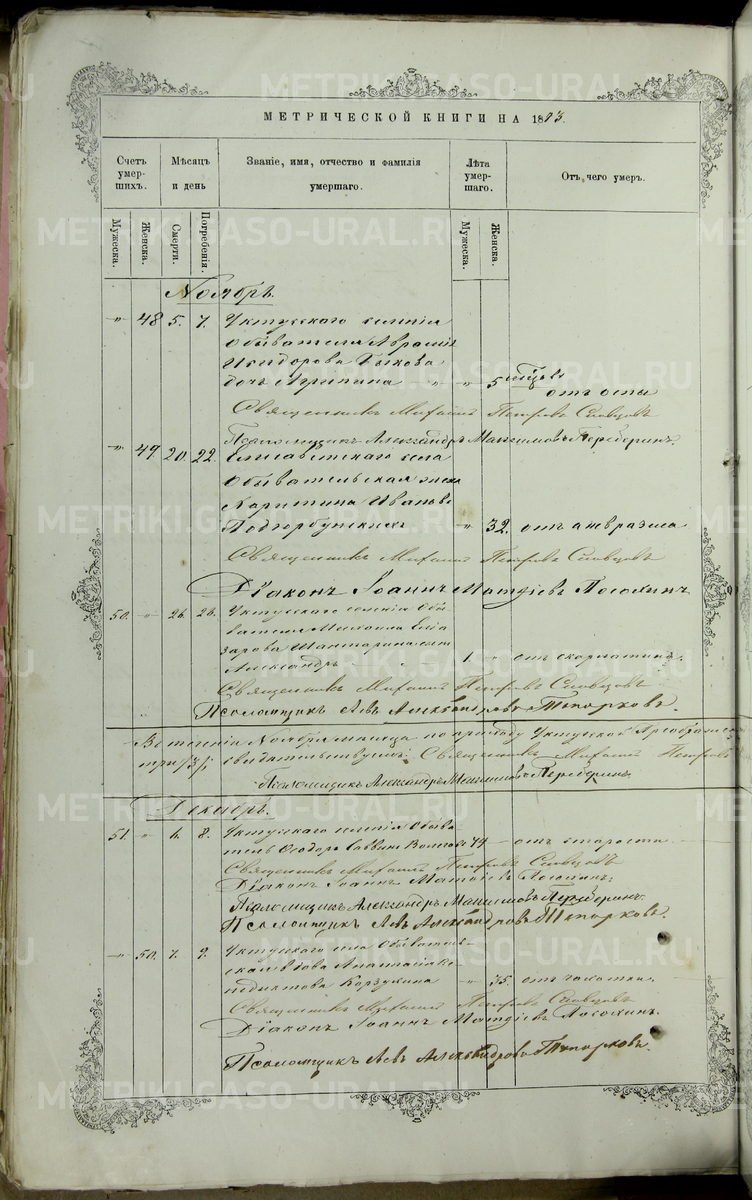 МЕТРИЧЕСКОЙ КНИГИ НА 1883.
Счетъ умер-шихъ.
Мѣсяцъ и день
Званіе, имя, отчество и фамилія умершаго.
Лѣта умер-шаго.
Отъ чего умеръ.
Мужеска.
Женска.
Смерти.
Погребенія.
Мужеска.
Женска.
Ноябрь.
" 48 5. 7. Уктусскаго селенія
обывателя Аврамія
Исидорова Быкова
дочь Агрипина " 5 мѣсяц. отъ оспы
Священникъ Михаилъ Петровъ Словцовъ
Псаломщикъ Александръ Максимовъ Переберинъ.
" 49 20. 22. Елисаветскаго села
обывательская жена
Харитина Иванова
" 32. отъ
Священникъ Михаилъ Петровъ Словцовъ
Діаконъ Іоаннъ Матѳіевъ Посохинъ
50. " 26. 28. Уктусскаго селенія обы-
вателя Михаила Елиа
зарова сынъ
Александръ 1. " отъ скарлатины.
Священникъ Михаилъ Петровъ Словцовъ
Псаломщикъ Левъ Александровъ Топорковъ.
Въ теченіи Ноября мѣсяца по приходу Уктусской Преображен
три /3/ свидѣтельствуемъ: Священникъ Михаилъ Петровъ
Псаломщикъ Александръ Максимовъ Переберинъ
Декабрь.
51. " 6. 8. Уктусскаго селенія Обыва
тель Ѳеодоръ Саввинъ 74 - отъ старости
Священникъ Михаилъ Петровъ Словцовъ
Діаконъ Іоаннъ Матѳіевъ Посохинъ.
Псаломщикъ Александръ Максимовъ Переберинъ.
Псаломщикъ Левъ Александровъ Топорковъ.
" 50. 7. 9. Уктусскаго села Обыватель-
ская вдова Анастасія Бе
недиктова Корзухина " 35. отъ чахотки.
Священникъ Михаилъ Петровъ Словцовъ
Діаконъ Іоаннъ Матѳіевъ Посохинъ.
Псаломщикъ Левъ Александровъ Топорковъ.
METRIKI.GASO-URAL.RU